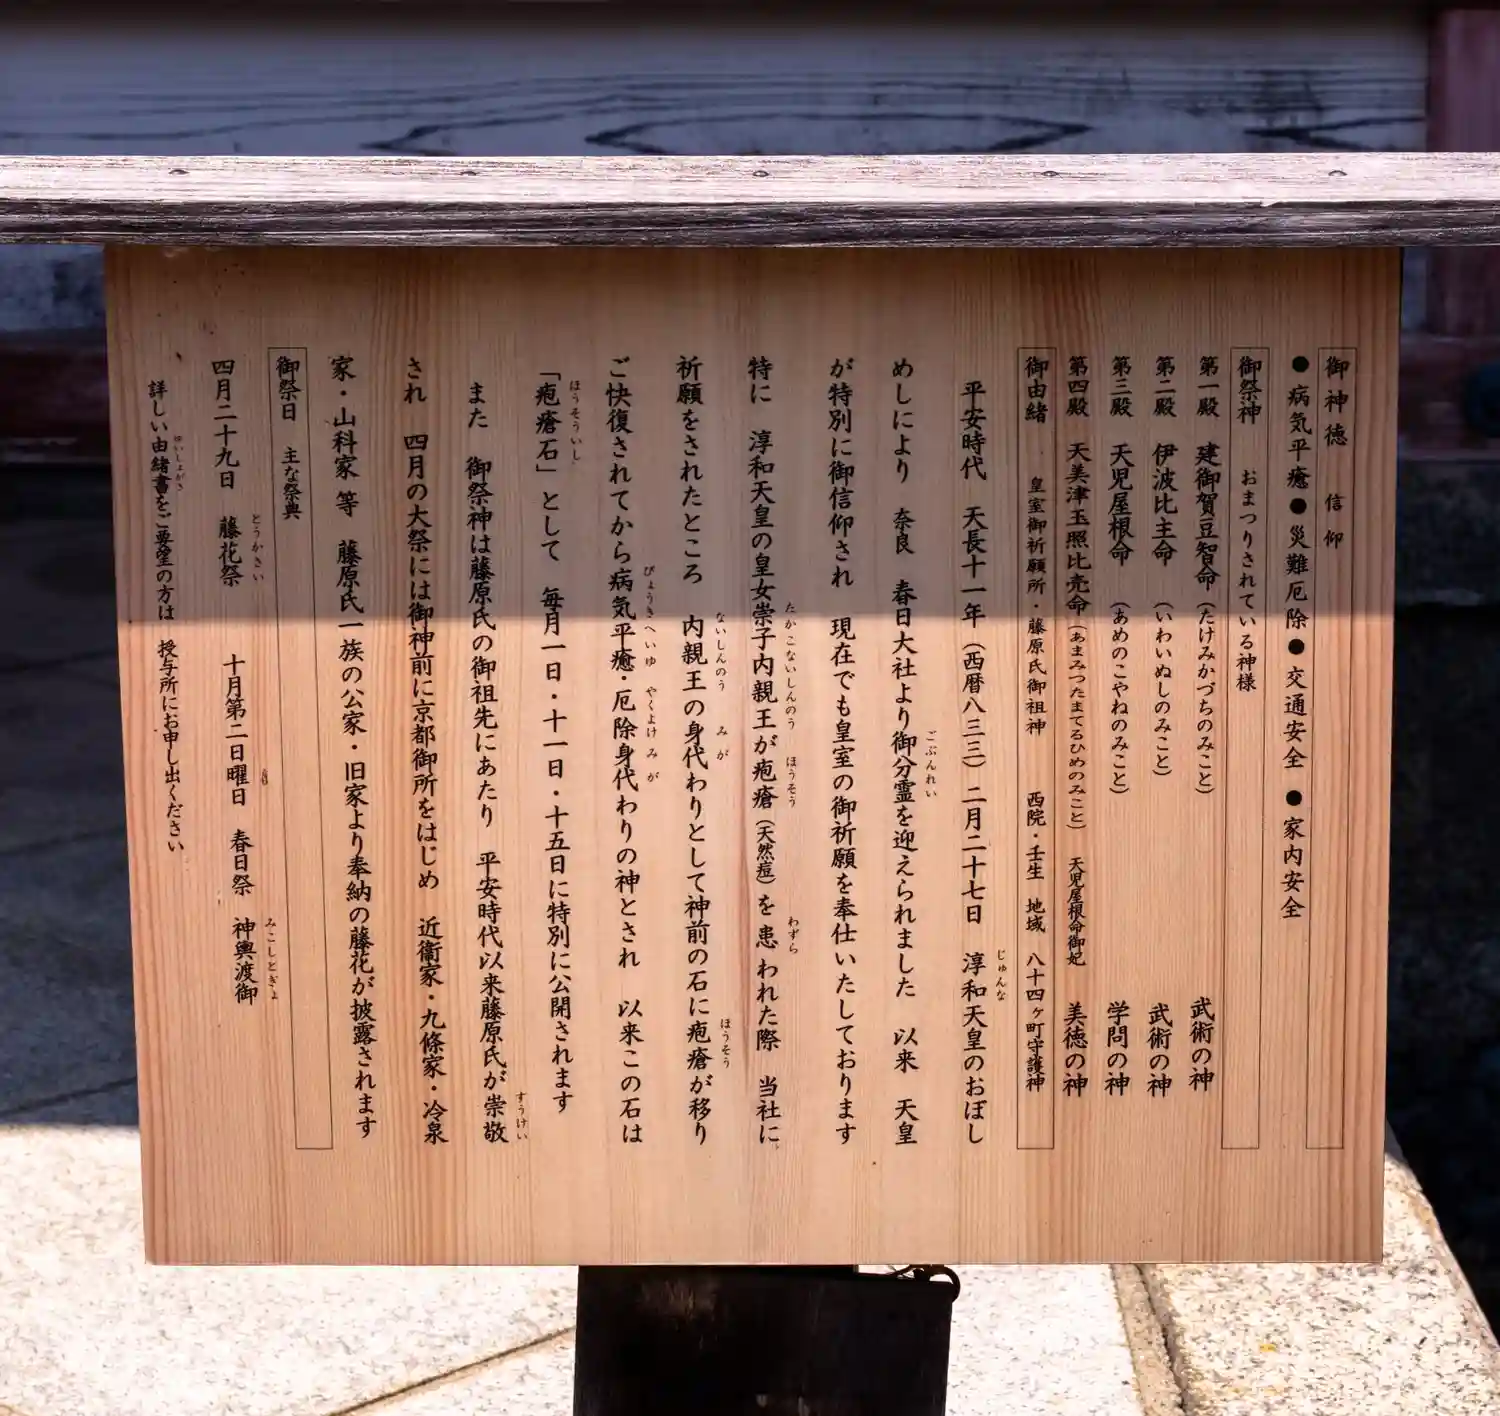 御神徳 信仰
●病気平癒●災難厄除●交通安全●家内安全
御祭神 おまつりされている神様
第一殿 建御賀豆智命(たけみかづちのみこと) 武術の神
第二殿 伊波比主命(いわいぬしのみこと) 武術の神
第三殿 天児屋根命(あめのこやねのみこと) 学問の神
第四殿 天美津玉照比売命(あまみつたまてるひめのみこと) 天児屋根命御妃 美徳の神
御由緒 皇室御祈願所・藤原氏御祖神 西院・壬生 地域 八十四ヶ町守護神
平安時代 天長十一年(西暦八三三)二月二十七日 淳和天皇のおぼし
じゅんな
めしにより 奈良 春日大社より御分霊を迎えられました 以来 天皇
ごぶんれい
が特別に御信仰され 現在でも皇室の御祈願を奉仕いたしております
特に 淳和天皇の皇女崇子内親王が疱瘡(天然痘)を患われた際 当社に
たかこないしんのう ほうそう わずら
祈願をされたところ 内親王の身代わりとして神前の石に疱瘡が移り
ないしんのう みが ほうそう
ご快復されてから病気平癒・厄除身代わりの神とされ 以来この石は
びょうきへいゆ やくよけみが
「疱瘡石」として 毎月一日・十一日・十五日に特別に公開されます
ほうそういし
また 御祭神は藤原氏の御祖先にあたり 平安時代以来藤原氏が崇敬
すうけい
され 四月の大祭には御神前に京都御所をはじめ 近衞家・九條家・冷泉
家・山科家 等 藤原氏一族の公家・旧家より奉納の藤花が披露されます
御祭日 主な祭典
四月二十九日 藤花祭 十月第二日曜日 春日祭 神輿渡御
とうかさい みこしとぎょ
詳しい由緒書をご要望の方は 授与所にお申し出ください
ゆいしょがき